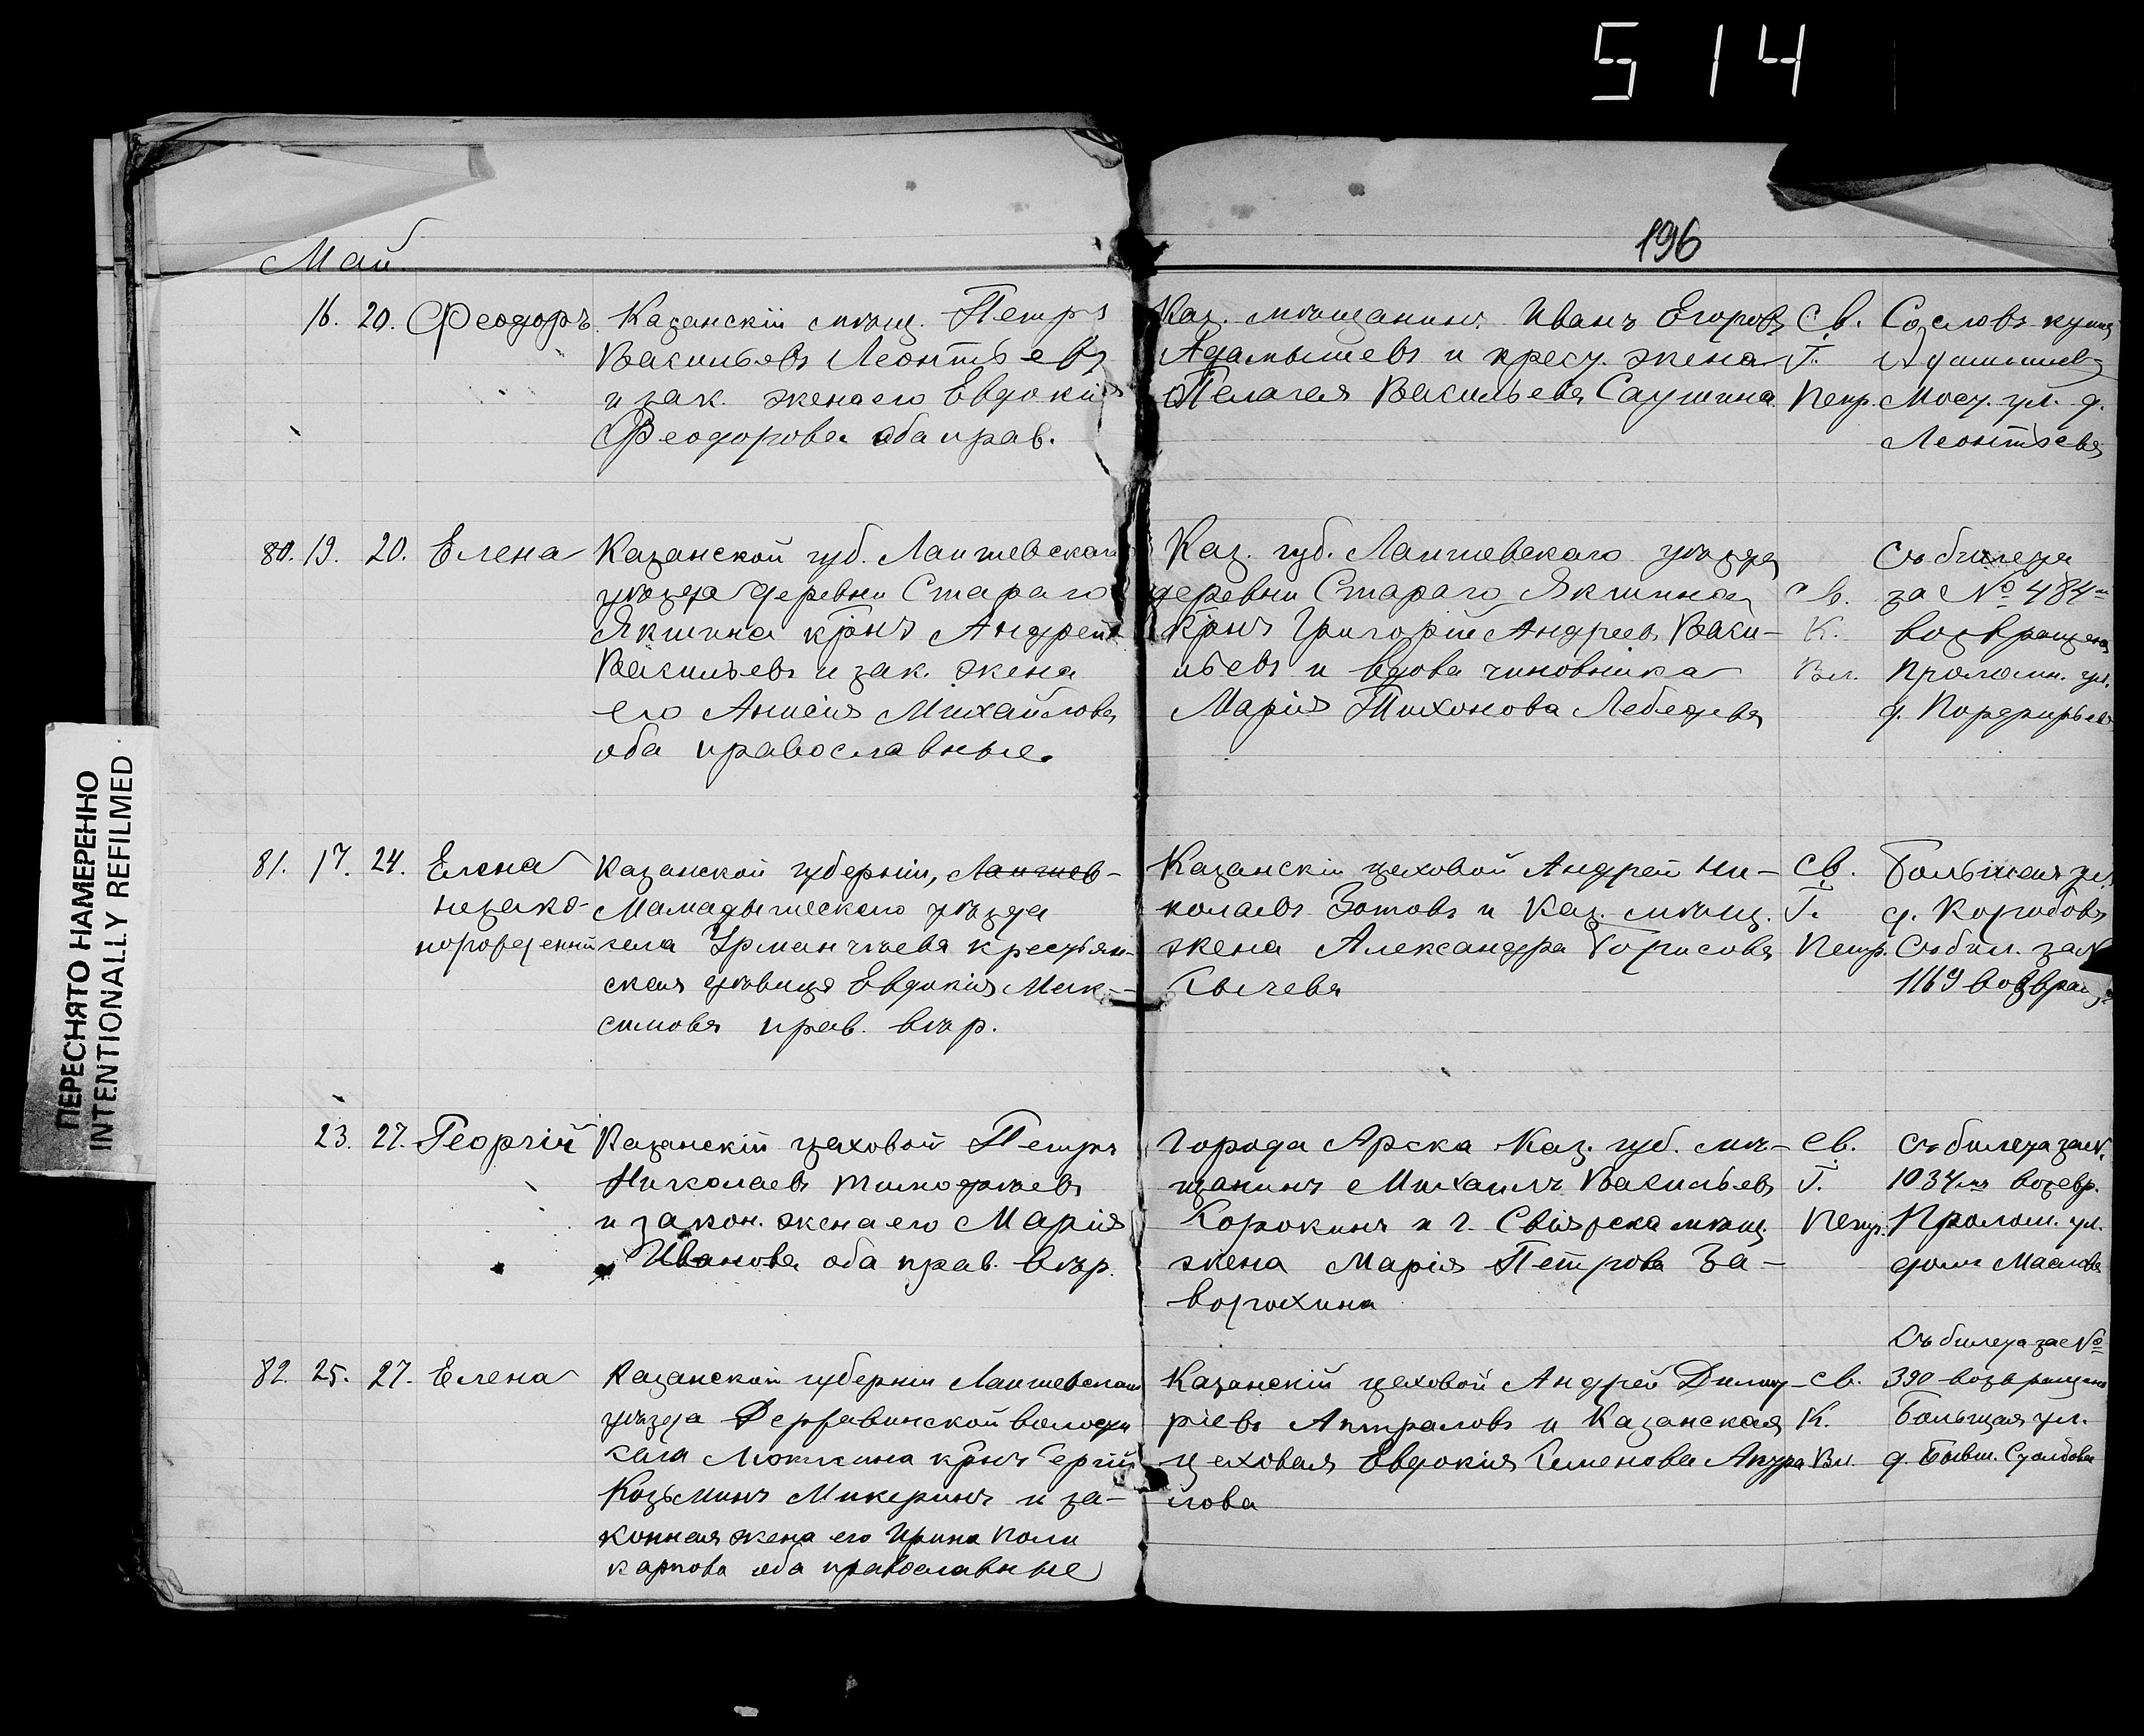 5 14
196
Май.
16. 20. Феодоръ. Казанскій мѣщ. Петръ
Васильевъ Леонтьевъ
и зак. жена его Евдокія
Феодорова оба прав.
Каз. мѣщанинъ Иванъ Егоровъ
Адамышевъ и крест. жена
Пелагея Васильева Саушина
Св.
Г.
Петр.
Со словъ купца
Адамышева
Моск. ул. д.
Леонтьева
80. 19. 20. Елена Казанской губ. Лаишевскаго
уѣзда деревни Стараго
Якшина крнъ Андрей
Васильевъ и зак. жена
его Анисія Михайлова
оба православные.
Каз. губ. Лаишевскаго уѣзда
деревни Стараго Якшина
крнъ Григорій Андреевъ Васи-
льевъ и вдова чиновника
Марія Тихонова Лебедева
Св.
К.
Вл.
Съ билета
за № 484
возвращена
Проломн. ул.
д. Порфирьева
81. 17. 24. Елена
незако-
норожденная
Казанской губерніи, Лаишев-
Мамадышскаго уѣзда
села Урманчѣева крестьян-
ская дѣвица Евдокія Мак-
симова прав. вѣр.
Казанскій цеховой Андрей Ни-
колаевъ Зотовъ и Каз. мѣщ.
жена Александра Борисова
Сычева
Св.
Г.
Петр.
Большая ул.
д. Коробова
Съ бил. за №
1169 возвращ.
23. 27. Георгій Казанскій цеховой Петръ
Николаевъ Тимофѣевъ
и закон. жена его Марія
Иванова оба прав. вѣр.
Города Арска Каз. губ. мѣ-
щанинъ Михаилъ Васильевъ
Сорокинъ и г. Свіяжска мѣщ.
жена Марія Петрова За-
ворохина
Св.
Г.
Петр.
Съ билета за №
1034 возвр.
Пролом. ул.
домъ Маслова
82. 25. 27. Елена Казанской губерніи Лаишевскаго
уѣзда Державинской волости
села крнъ Сергій
Козьминъ Микеринъ и за-
конная жена его Ирина Поли
карпова оба православные
Казанскій цеховой Андрей Димит-
ріевъ Апраловъ и Казанская
цеховая Евдокія Семенова Апра
лова
Св.
К.
Вл.
Съ билета за №
390 возвращена
Большая ул.
д. бывш. Столбова
ПЕРЕСНЯТО НАМЕРЕННО
INTENTIONALLY REFILMED